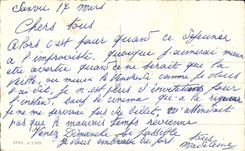 17 mars
Chers tous
Alors c'est pour quand ce déjeuner
à l'improviste. quoique j'aimerais mieux
être avertie quand ce ne serait que la
veille, ou mieux le Vendredi comme je vous
l'ai dit, je n'ai plus d'invitations pour
l'instant. Sauf le cinéma qui à la rigueur
je ne me servirai pas du billet en attendant
pas que le mauvais temps revienne
Venez Dimanche
Je vous embrasse
Madeleine